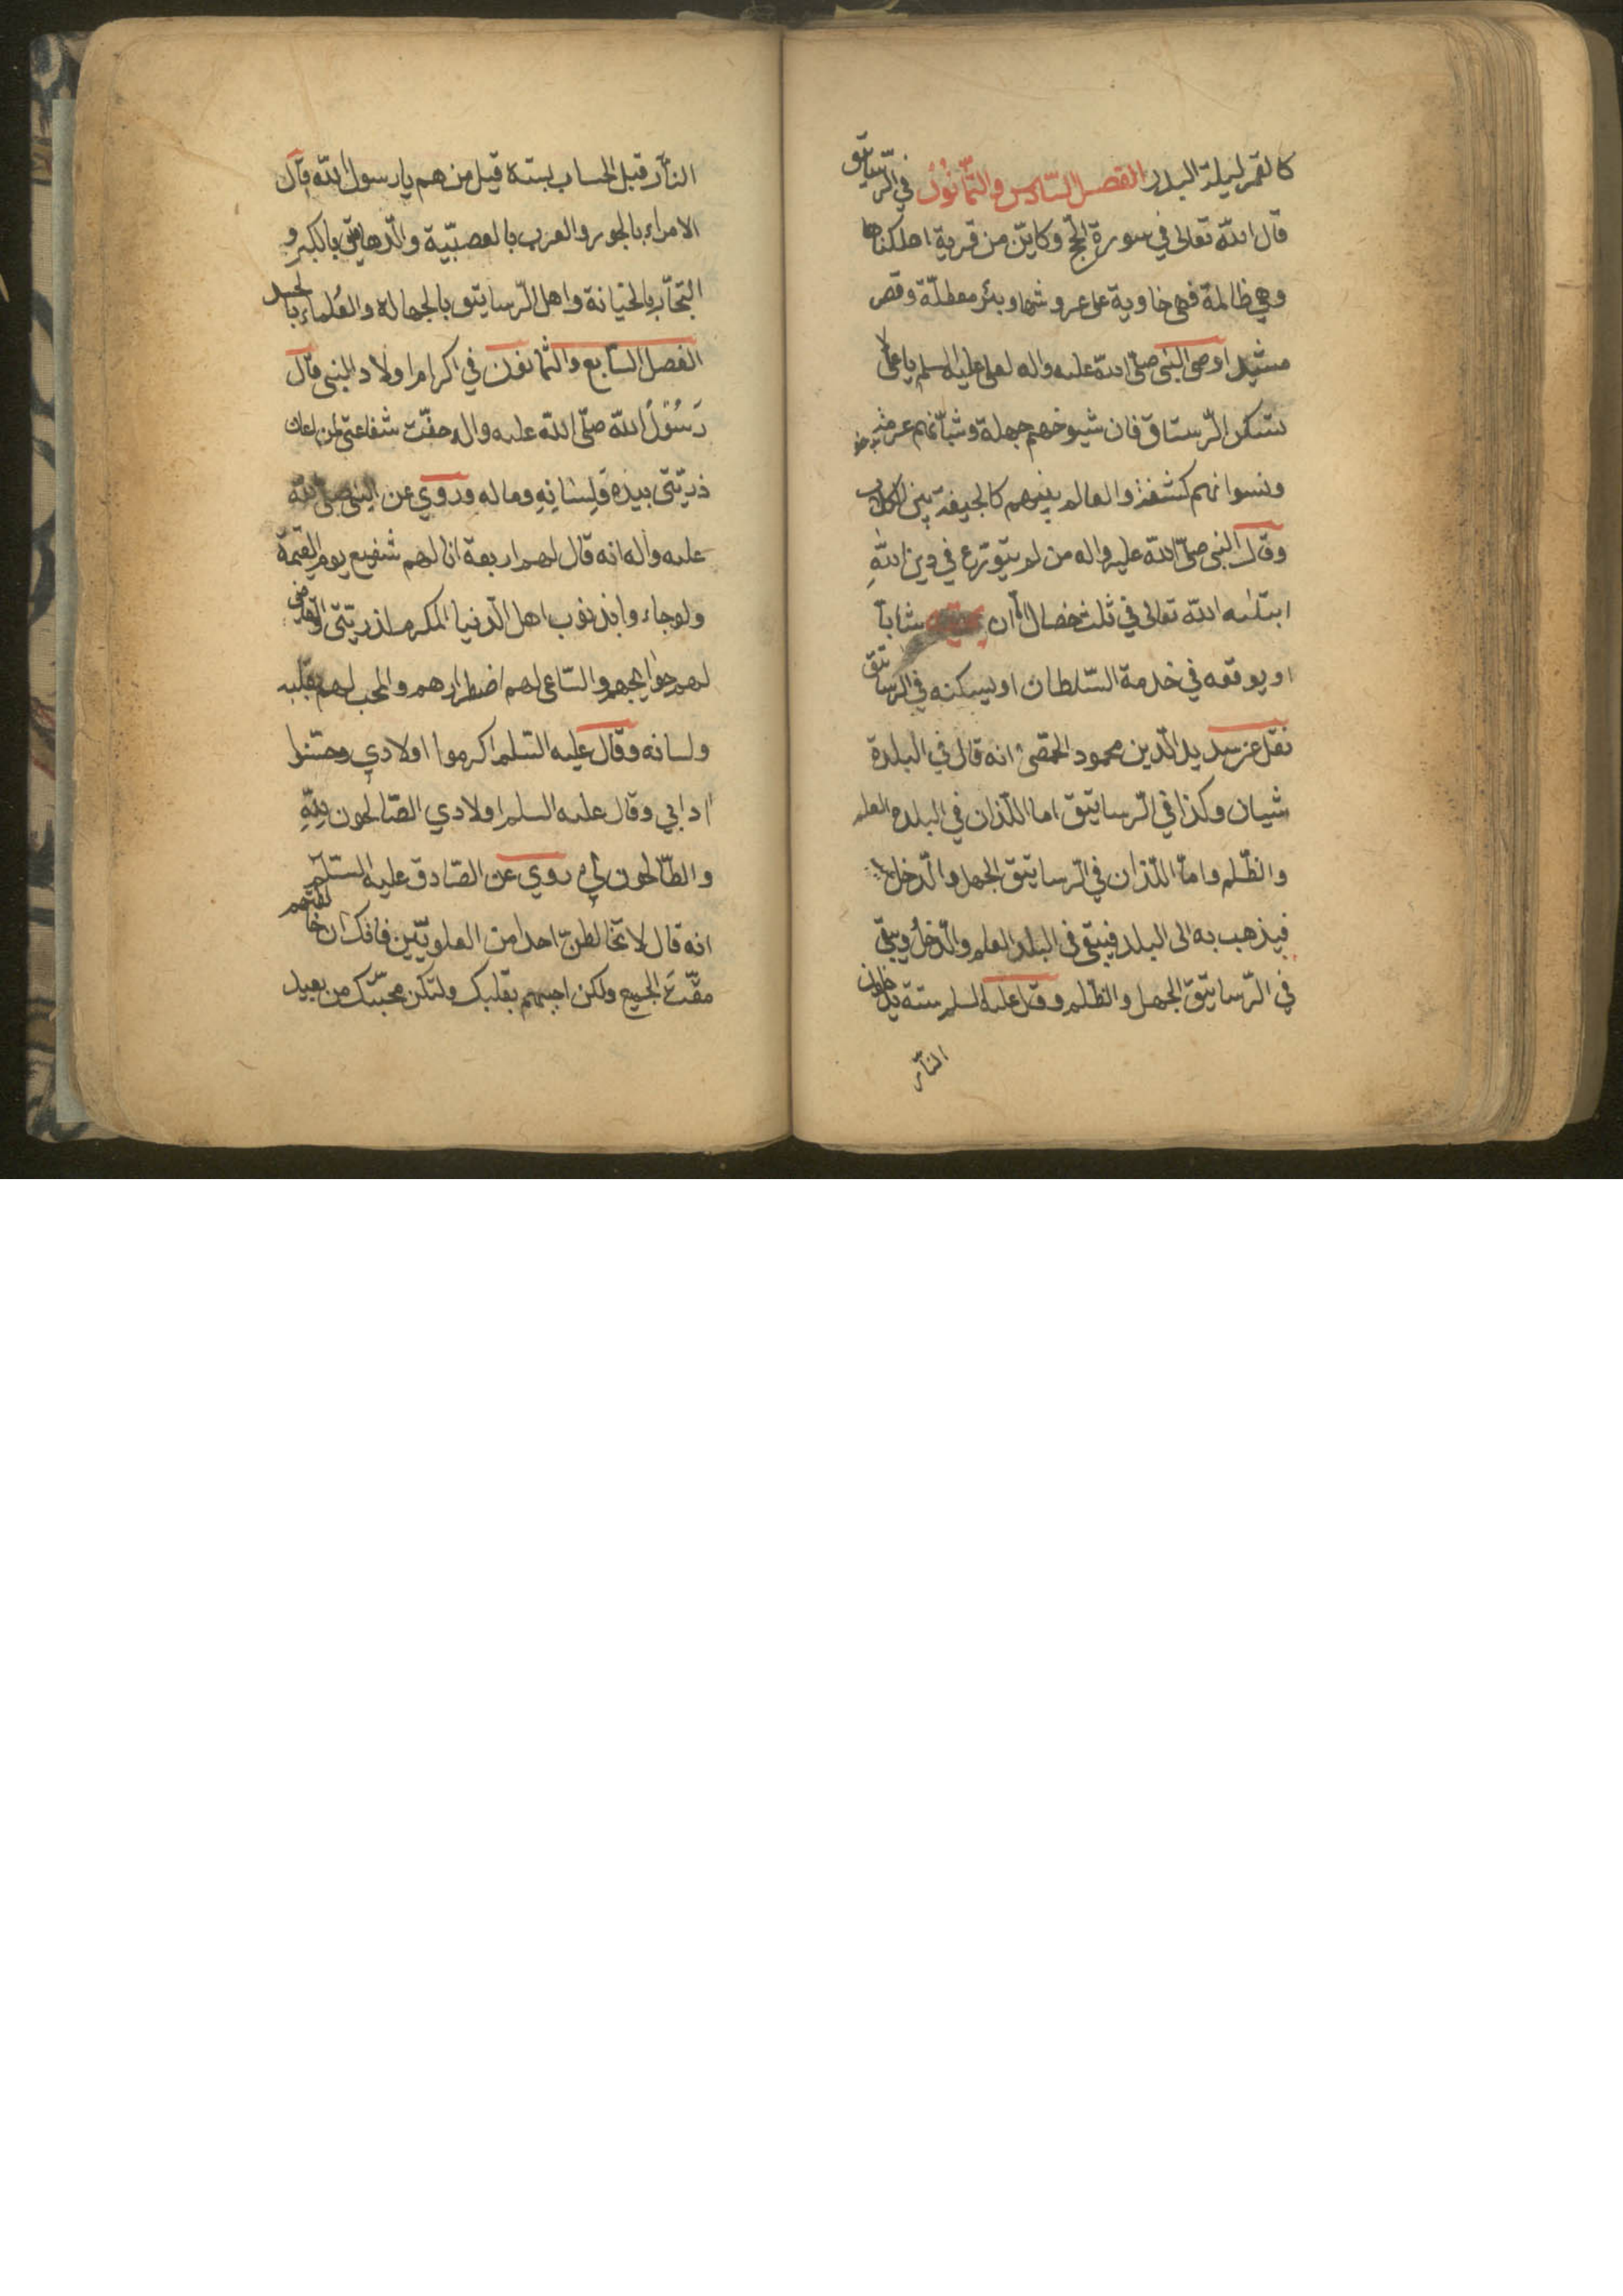 كالقمر ليلة البدر الفصل السّادس والثّمانون في الرّساتيق
قال الله تعالى في سورة الحجّ وكايّن من قرية اهلكناها
وهي ظالمة فهي خاوية على عروشها وبئر معطلّة وقصر
مشيد اوصى النبى صلّى الله عليه واله لعلى عليه السلم يا على لا
تسكن الرّستاق فان شيوخهم جهلة وشبّانهم عرمة
ونسوانهم كشفة والعالم بينهم كالجيفة بين الكلاب
وقال النبى صلّى الله عليه واله من لم يتورّع في دين اللهِ
ابتلىه الله تعالى في ثلث خصال امّا ان شابّا
او يوقعه في خدمة السّلطان او يسكنه في الرساتيق
نقل عن سديد الدّين محمود الحمّصى انه قال في البلدة
شيان وكذا في الرّساتيق اما اللّذان في البلدة العلم
والظّلم وامّا اللّذان في الرّساتيق الجهل والدّخل
فيذهب به الى البلد فيبقى في البلد العلم والدّخلُ ويبقى
في الرّساتيق الجهل والظّلم وقال عليه السلم ستة يدخلون
النّار
النّار قبل الحساب بستة قيل من هم يا رسول الله قال
الامراء بالجور والعرب بالعصبيّة والدّهاقين بالكبر و
التجّار بالخيانة واهل الرّساتيق بالجهالة والعُلماء بالحسد
الفصل السّابع والثمانون في اكرام اولاد النبى قال
رَسُوْلُ الله صلّى الله عليه واله حقّت شفاعتى لمن اعان
ذريّتى بيده وَلِسَانِهِ وماله وروي عن النبى صلى الله
عليه واله انه قال لهم اربعة انا لهم شفيع يوم القيمة
ولو جاءوا بذنوب اهل الدّنيا المكرم لذريّتى والقاضى
لهم حوايجهم والسّاعى لهم اضطرارهم والمحب لهم بقلبه
ولسانه وقال عليه السّلم اكرموا اولادي وحسّنوا
ادابي وقال عليه السلم اولادي الصّالحون للهِ
والطّالحون لي روي عن الصّادق عليه السّلم
انه قال لا تخالطنّ احدا من العلويّين فانك ان خالطتهم
مقتَّ الجميع ولكن احبهم بقلبك ولتكن محبّتك من بعيد